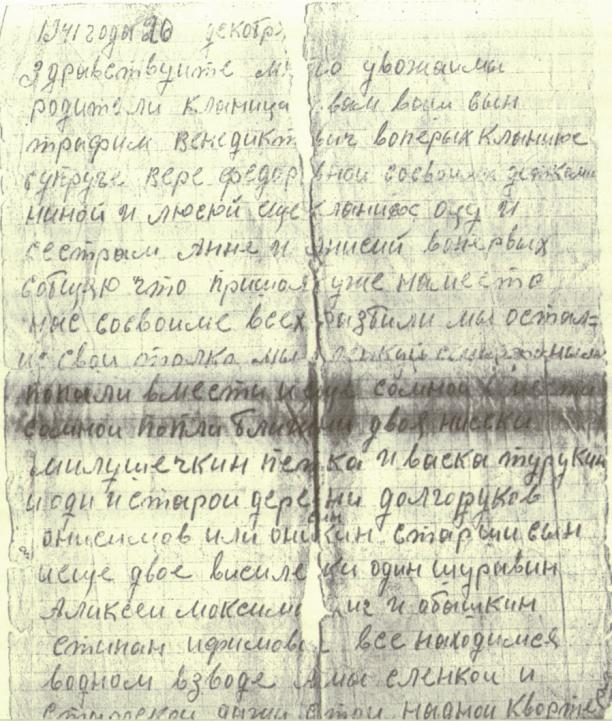 1941 года 20 декабр
Здравствуите м го уважаимы
родители кланица вам ваш сын
трафим Венедикт вич воперых кланиюс
супруге Вере федор вной соевоими детками
ниной и люсюй еще кланиюс оцу и
сестрам Анне и Анисий вопервых
собщую что пришол уже наместо
нас соевоиме всех разбили мы остал=
ис свои толка мы
попали вмести исще сомной вмести
сомной попали ближнии двоя нисски
милушечкин петка и васка турукин
и оди истарои дере ни долгоруков
онисимов или они кин старши сын
исще двое висиле ки один шуравин
Аликсеи максими ич и абашкин
стипан ифимов все находимся
водном взводе Амы сленкой и
стой наоной квортѣ